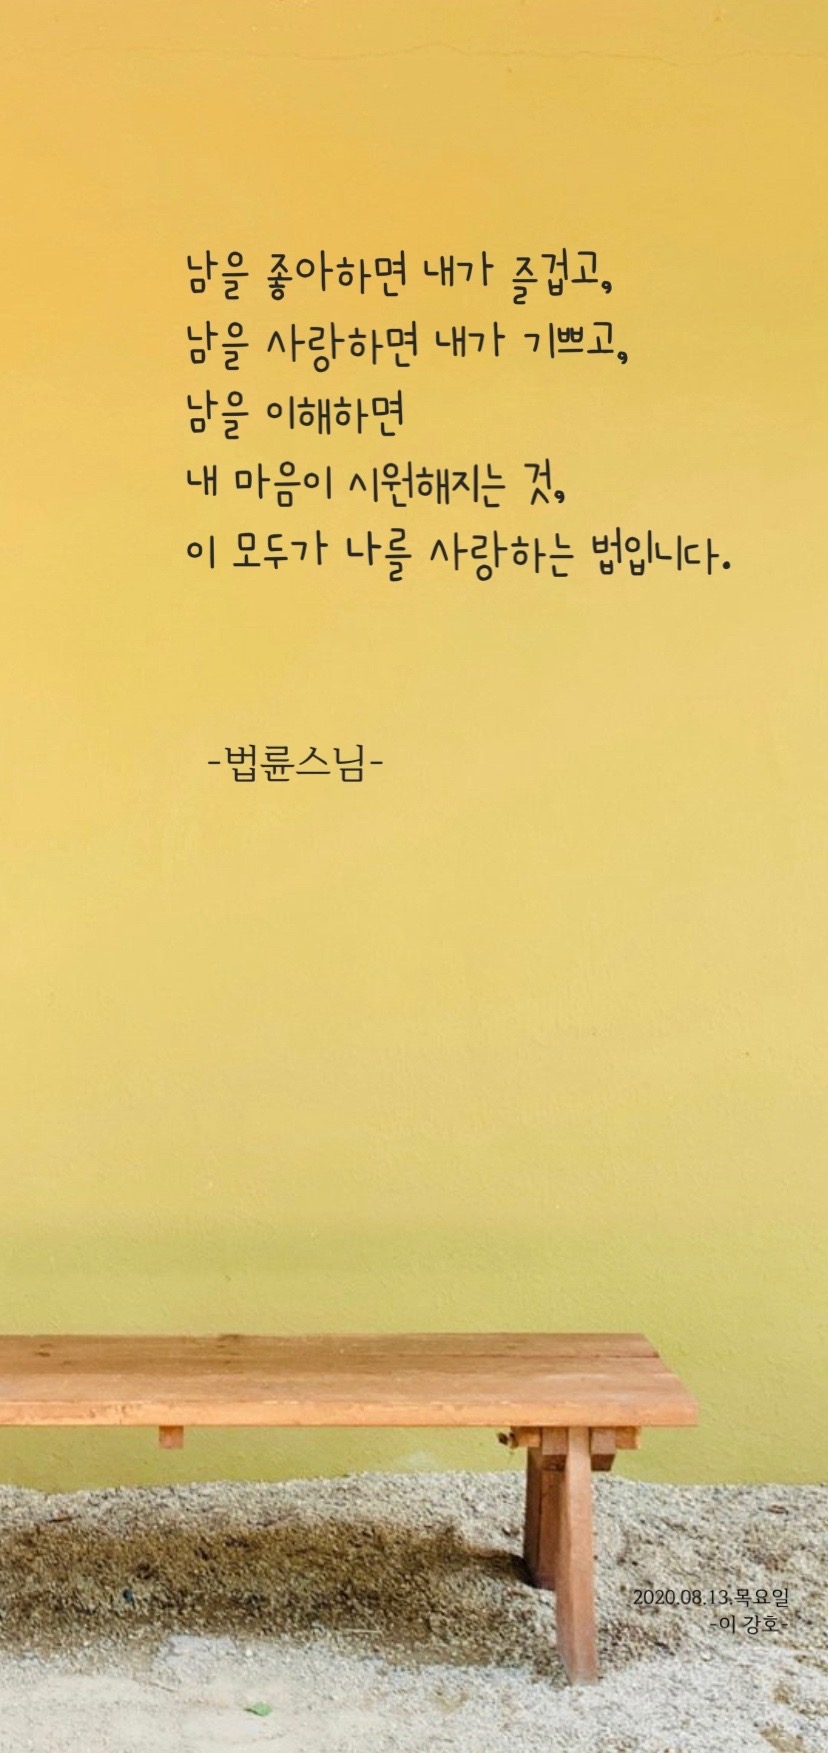 남을 좋아하면 내가 즐겁고,
남을 사랑하면 내가 기쁘고,
남을 이해하면
내 마음이 시원해지는 것,
이 모두가 나를 사랑하는 법입니다.
-법륜스님-
2020.08.13.목요일
-이 강호-